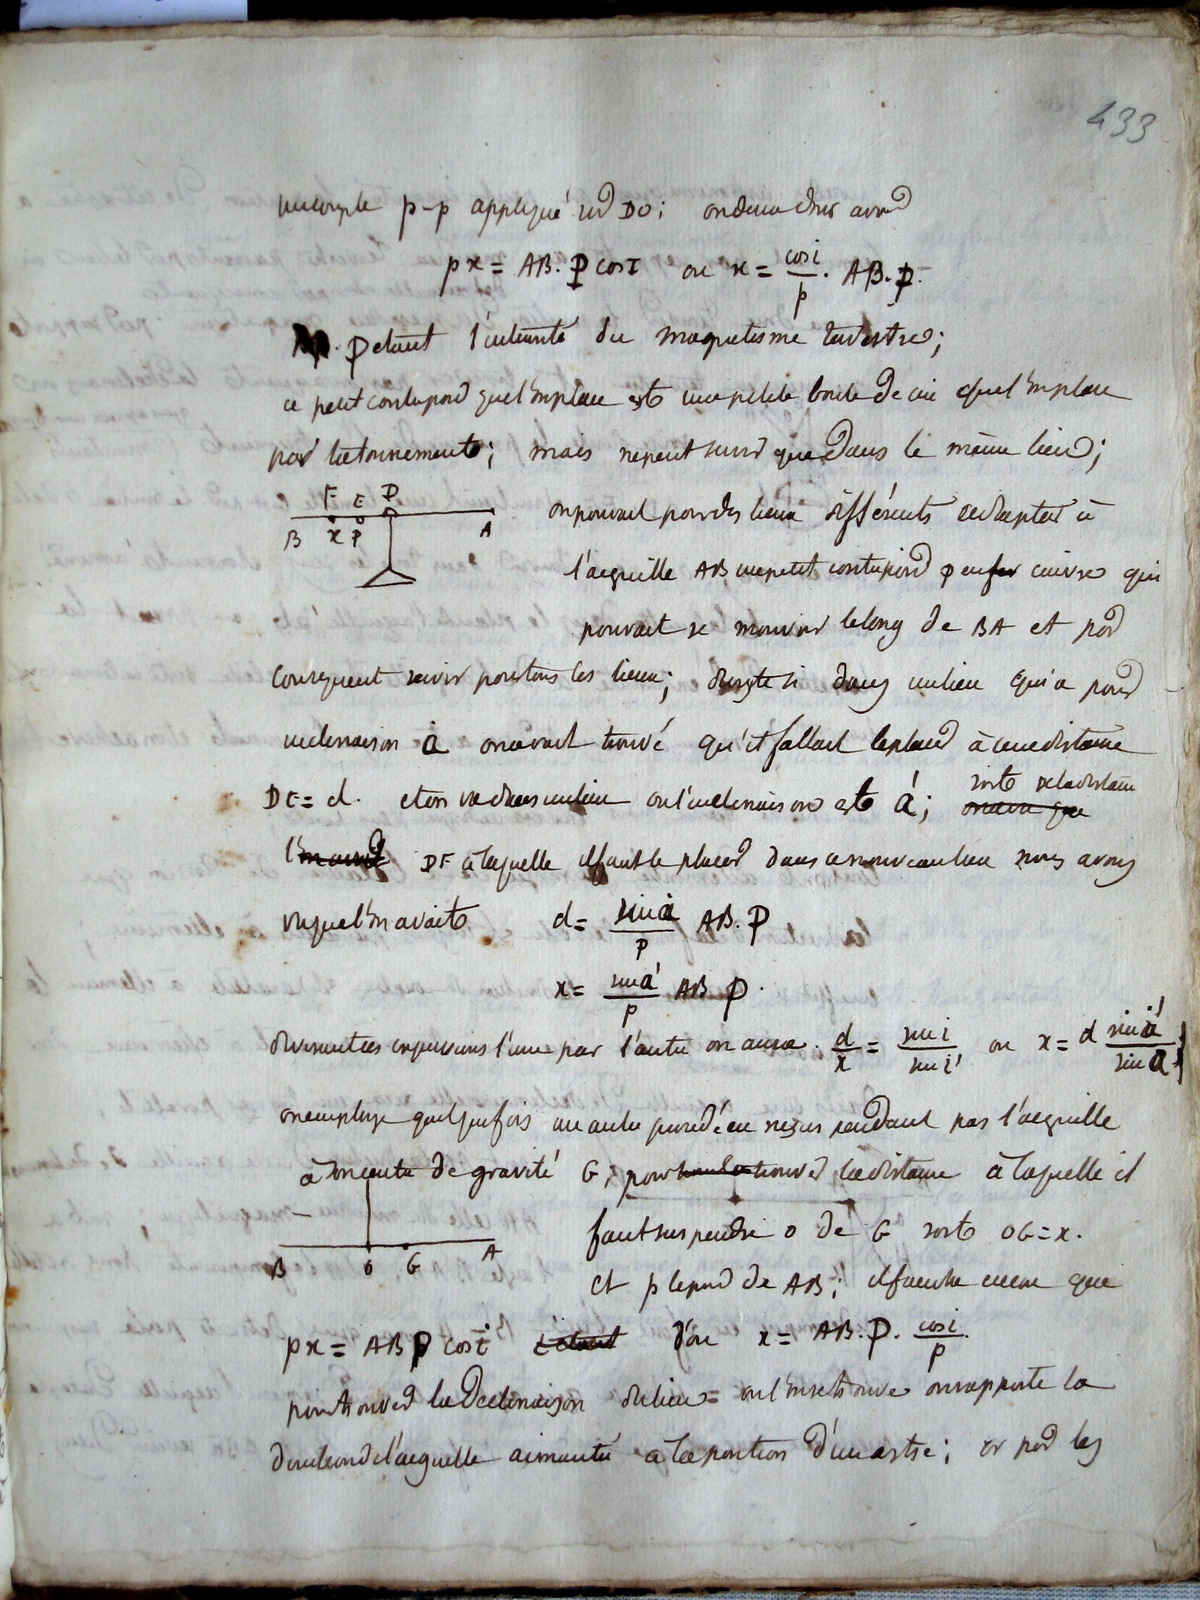 433
un couple p-p appliqué sur DO; on devra donc avoir
px = AB. P cos I ou x = cos i / p . AB. P.
P étant l'intensité du magnetisme terrestre;
ce petit contrepoid que l'on place est une petite boule de cire que l'on place
par tatonnements; mais ne peut servir que dans le même lieu;
F E D
B x P A
on pouvait pour des lieux différents adapter à
l'aeguille AB un petit contrepoid p en fer cuivre qui
pouvait se mouvoir le long de BA et par
consequent servir pour tous les lieux; ainsi dans un lieu qui a pour
inclinaison i on avait trouvé qu'il fallait le placer à une distance
DE = d. et on va dans un lieu où l'inclinaison est i'; soit x la distance
DF à laquelle il faut le placer dans ce nouveau lieu nous avons
vu que l'on avait d = sin i / p AB. P
x = sin i' / p AB P.
divisant ces expressions l'une par l'autre on aura. d / x = sin i / sin i' ou x = d sin i' / sin i;
on emploie quelquefois un autre procédé en ne suspendant pas l'aeguille
à son centre de gravité G; pour trouver la distance à laquelle il
faut suspendre O de G soit OG = x.
B O G A
et p le poid de AB; il faudra encore que
px = AB P cos i d'où x = AB. P. cos i / p
pour trouver la declinaison du lieu où l'on se trouve on rapporte la
direction de l'aeguille aimantée à la position d'un astre; or par les